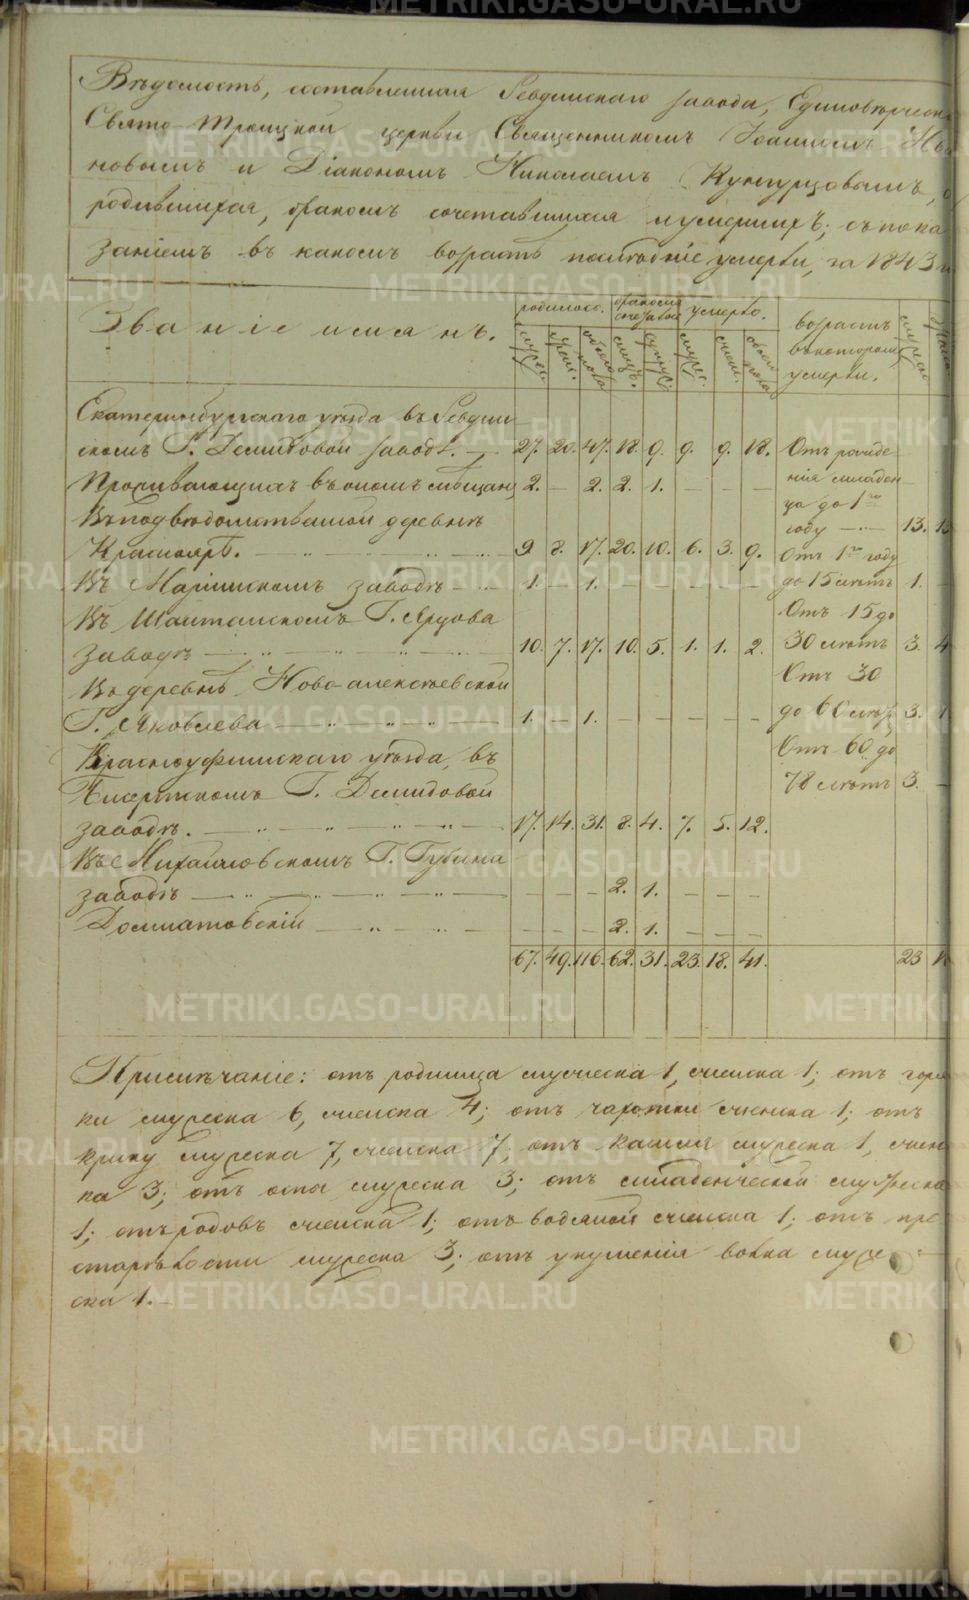 Вѣдомость, составленная Ревдинскаго завода, Единовѣрческ
Свято-Троицкой церкви Священникомъ Іоанномъ
новымъ и Діакономъ Николаемъ Кунгурцовымъ, о
родившихся, бракомъ сочетавшихся и умершихъ; съ пока
заніемъ въ какомъ возрастѣ послѣдніе умерли, за 1843 г
Званіе исисанъ.
родилось. бракомъ сочетан. умерло. возрастъ въ которомъ умерли.
мужес. женс. обоего пола лицъ. супруж. мужес. женс. обоего пола мужеска женск.
Екатеринбургскаго уѣзда въ Ревдин
скомъ Г. Демидовой заводѣ. — 27. 20. 47. 18. 9. 9. 9. 18. Отъ рожде
Проживающихъ въ ономъ мѣщанъ 2. — 2. 2. 1. — — — нія младен
Въ подвѣдомственной деревнѣ ца до 1го
году — 13. 13
Красноярѣ. — 9 8. 17. 20. 10. 6. 3. 9. Отъ 1го году
Въ Маріинскомъ заводѣ — 1. — 1. — — — — — до 15 лѣтъ 1. —
Въ Шайтанскомъ Г. Ярцова Отъ 15 до
заводѣ — 10. 7. 17. 10. 5. 1. 1. 2. 30 лѣтъ 3. 4
Въ деревнѣ Ново-алексѣевской Отъ 30
Г. Яковлева — 1. — 1. — — — — — до 60 лѣтъ 3. 1
Красноуфимскаго уѣзда, въ Отъ 60 до
Бисертскомъ Г. Демидовой 78 лѣтъ 3. —
заводѣ. — 17. 14. 31. 8. 4. 7. 5. 12.
Въ Михайловскомъ Г. Губина
заводѣ — — — — 2. 1. — — —
Долматовскій — — — — 2. 1. — — —
67. 49. 116. 62. 31. 23. 18. 41. 23
Примѣчаніе: отъ родимца мужеска 1, женска 1; отъ горя
ки мужеска 6, женска 4; отъ чахотки женска 1; отъ
крику мужеска 7, женска 7; отъ кашля мужеска 1, женс
ка 3; отъ оспы мужеска 3; отъ младенческой мужеска
1; отъ родовъ женска 1; отъ водяной женска 1; отъ пре
старѣлости мужеска 3; отъ укушенія волка муже
ска 1.
METRIKI.GASO-URAL.RU